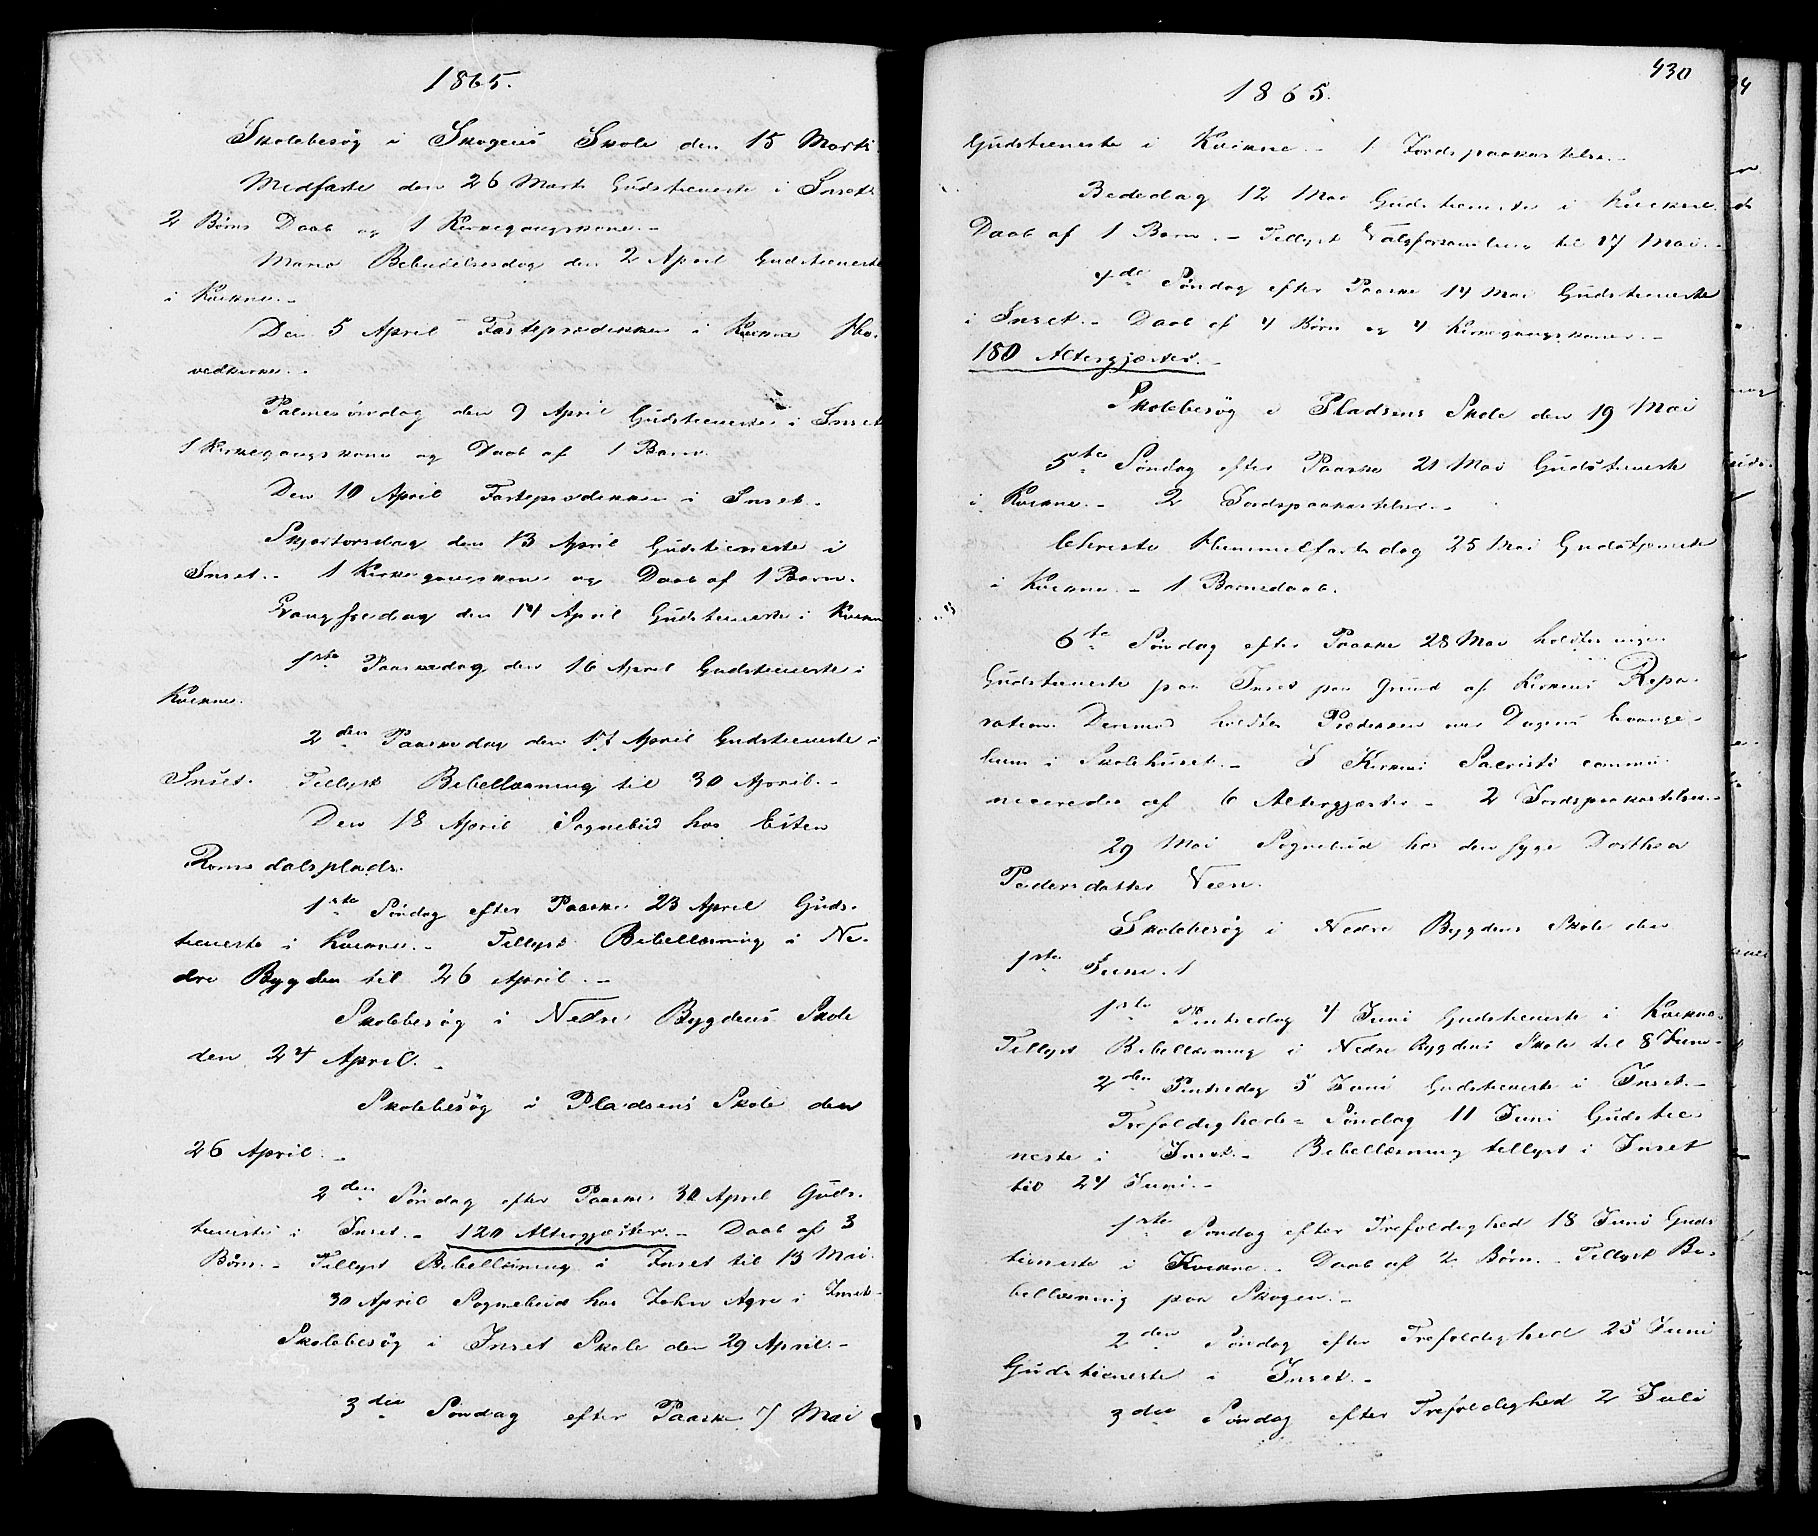 1865.
Skolebesøg i Skogens Skole den 15 Marts.
Midfaste den 26 Marts Gudstieneste i Inset.
2 Børns Daab og 1 Kirkegangskone. -
Maria Bebudelsesdag den 2 April Gudstieneste
i Kvikne. -
Den 5 April Fasteprædiken i Kvikne Ho-
vedkirke. -
Palmesøndag den 9 April Gudstieneste i Inset
1 Kirkegangskone og Daab af 1 Barn.
Den 10 April Fasteprædiken i Inset. -
Skjertorsdag den 13 April Gudstieneste i
Inset. - 1 Kirkegangskone og Daab af 1 Barn.
Langfredag den 14 April Gudstieneste i Kvikne
1ste Paaskedag den 16 April Gudstieneste i
Kvikne.
2den Paaskedag den 17 April Gudstieneste i
Inset. Tillyst Bibellæsning til 30 April. -
Den 18 April Sognebud hos Esten
Romsdalsplads.
1ste Søndag efter Paaske 23 April Guds-
tieneste i Kvikne. - Tillyst Bibellæsning i Ne-
dre Bygden til 26 April. -
Skolebesøg i Nedre Bygdens Skole
den 24 April. -
Skolebesøg i Pladsens Skole den
26 April. -
2den Søndag efter Paaske 30 April Guds-
tieneste i Inset. - 120 Altergjæster. - Daab af 3
Børn. - Tillyst Bibellæsning i Inset til 13 Mai.
30 April Sognebud hos John Agre i Inset. -
Skolebesøg i Inset Skole den 29 April. -
3die Søndag efter Paaske 7 Mai
430
1865.
Gudstieneste i Kvikne. - 1 Jordspaakastelse. -
Bededag 12 Mai Gudstieneste i Kvikne.
Daab af 1 Barn. - Tillyst Valgforsamling til 17 Mai. -
4de Søndag efter Paaske 14 Mai Gudstieneste
i Inset. - Daab af 4 Børn og 4 Kirkegangskoner. -
180 Altergjæster. -
Skolebesøg i Pladsens Skole den 19 Mai
5te Søndag efter Paaske 21 Mai Gudstieneste
i Kvikne. - 2 Jordspaakastelser. -
Christi Himmelfartsdag 25 Mai Gudstjeneste
i Kvikne. - 1 Barnedaab.
6te Søndag efter Paaske 28 Mai holdtes ingen
Gudstieneste paa Inset paa Grund af Kirkens Repa-
ration. Derimod holdtes Prædiken over Dagens Evange-
lium i Skolehuset. - I Kirkens Sacristi commu-
niceredes af 6 Altergjæster - 2 Jordspaakastelser. -
29 Mai Sognebud hos den syge Dorthea
Pedersdatter Næsn.
Skolebesøg i Nedre Bygdens Skole den
1ste Juni.
1ste Pintsedag 4 Juni Gudstieneste i Kvikne.
Tillyst Bibellæsning i Nedre Bygdens Skole til 8 Juni.
2den Pintsedag 5 Juni Gudstieneste i Inset. -
Trefoldigheds-Søndag 11 Juni Gudstie
neste i Inset. - Bibellæsning tillyst i Inset
til 24 Juni. -
1ste Søndag efter Trefoldighed 18 Juni Guds
tieneste i Kvikne. - Daab af 2 Børn. - Tillyst Bi-
bellæsning paa Skogen. -
2den Søndag efter Trefoldighed 25 Juni
Gudstieneste i Inset. -
3die Søndag efter Trefoldighed 2 Juli